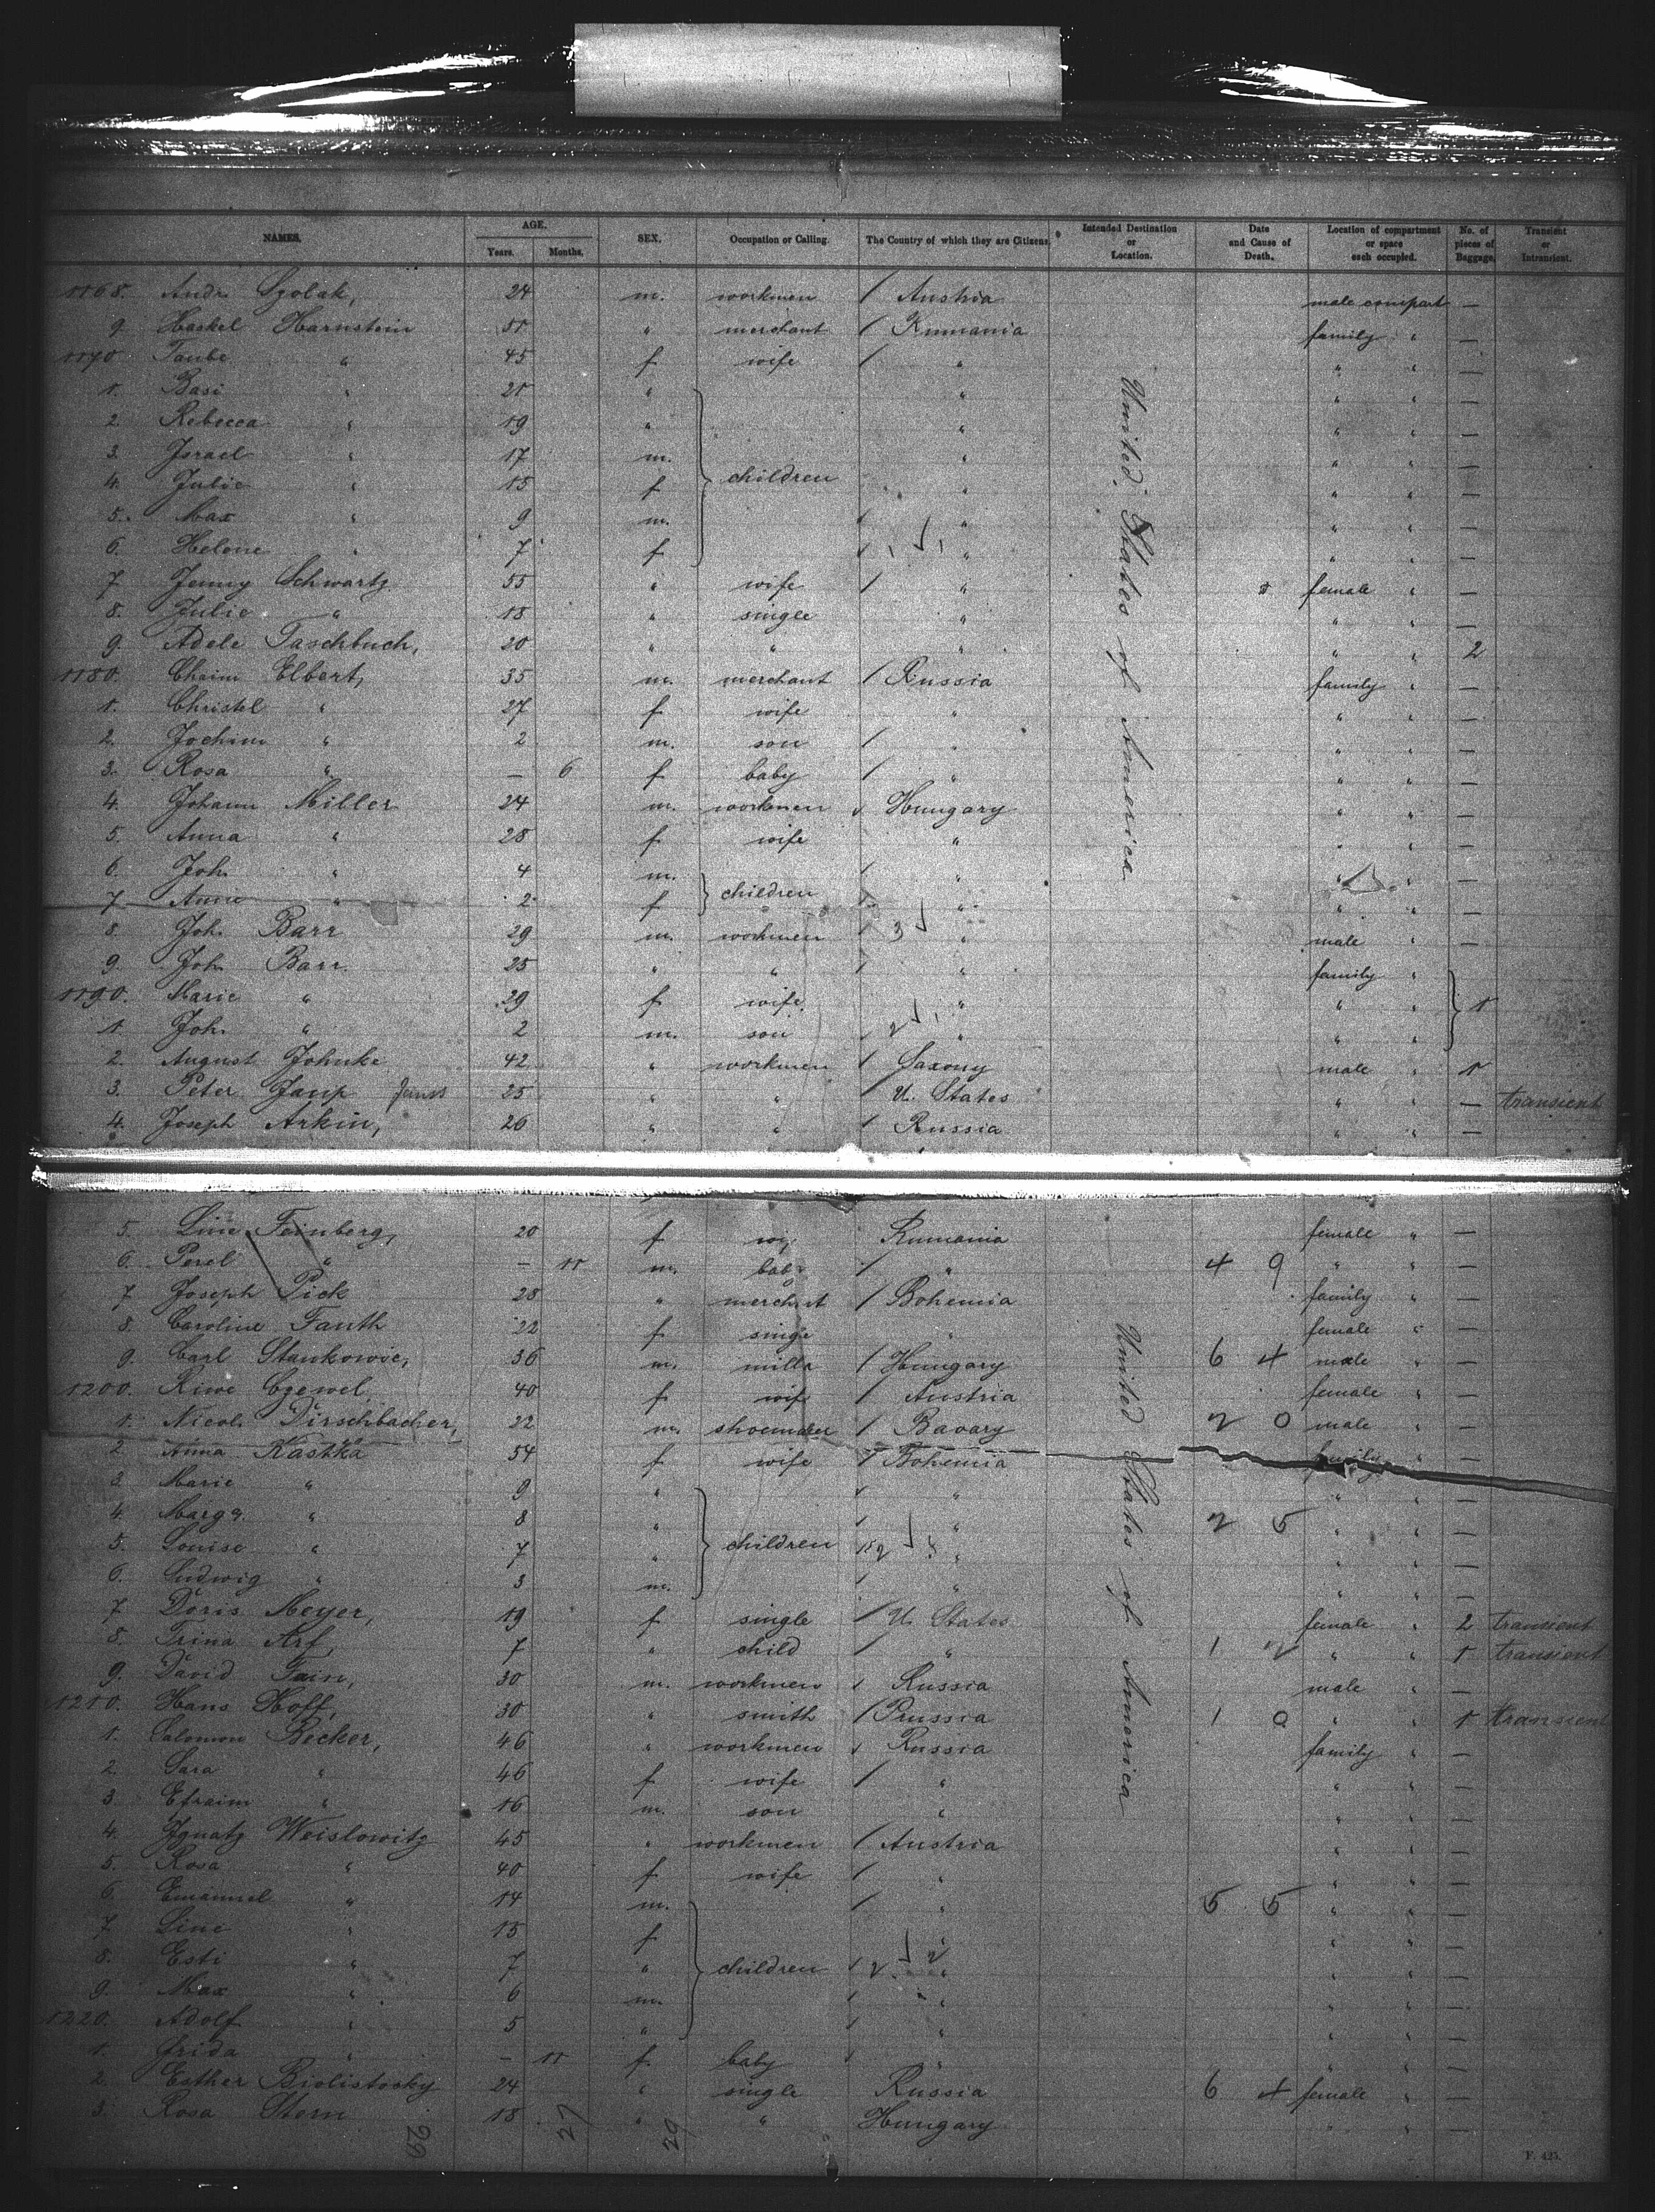 NAMES. AGE. SEX. Occupation or Calling. The Country of which they are Citizens. Intended Destination or Location. Date and Cause of Death. Location of compartment or space each occupied. No. of pieces of Baggage. Transient or Intransient.
Years. Months.
1168. Andr. Szolak, 24 m. workmen / Austria male compart —
9. Haskel Harnstein 51 " merchant / Rumania family " —
1170. Taube " 45 f wife / " " " —
1. Basi " 21 " " " " —
2. Rebecca " 19 " " " " —
3. Israel " 17 m. " " " —
4. Julie " 15 f children " " " —
5. Max " 9 m. " " " —
6. Helene " 7 f " " " —
7. Jenny Schwartz 55 " wife / " female " —
8. Julie " 18 " single " " " —
9. Adele Taschbuch, 20 " " " " " 2
1180. Chaim Elbert, 35 m. merchant / Russia family " —
1. Christel " 27 f wife " " " —
2. Jochim " 2 m. son / " " " —
3. Rosa " — 6 f baby / " " " —
4. Johann Miller 24 m. workmen / Hungary " " —
5. Anna " 28 f wife " " " —
6. Joh. " 4 m. children / " " " —
7. Annie " 2 f " " " —
8. Joh. Barr 29 m. workmen 3 " male " —
9. Joh. Barr. 25 " " " family "
1190. Marie " 29 f wife " " " 1
1. Joh. " 2 m. son 2 " " "
2. August Johnke 42 " workmen / Saxony male " 1
3. Peter Janp 25 " " / U. States " " — transient
4. Joseph Arkin, 26 " " / Russia " " —
United States of America
5. Line Feinberg, 20 f Rumania female " —
6. Perel " — 11 m. bab / " 4 9 " " —
7. Joseph Pick 28 " merchnt / Bohemia family " —
8. Caroline Fauth 22 f singe " female " —
9. Carl Stankowic, 36 m. / Hungary 6 4 male " —
1200. Riwe Czewel, 40 f wife / Austria female " —
1. Nicol. Dirschbacher, 22 m. shoemaker / Bavary 2 0 male " —
2. Anna Kastka 54 f wife / Bohemia family " —
3. Marie " 9 " " " " —
4. Marg. " 8 " " 2 5 " " —
5. Louise " 7 " children " " " —
6. Ludwig " 3 m. " " " —
7. Doris Meyer, 19 f single / U. States female " 2 transient
8. Trina Arf, 7 " child / " 1 2 " " 1 transient
9. David Fain, 30 m. workmen / Russia male " —
1210. Hans Hoff, 30 " smith / Prussia 1 0 " " 1 transient
1. Salomon Becker, 46 " workmen / Russia family " —
2. Sara " 46 f wife / " " " —
3. Efraim " 16 m. son " " " —
4. Ignatz Weislowitz 45 " workmen / Austria " " —
5. Rosa " 40 f wife / " " " —
6. Emanuel " 14 m. / " 5 5 " " —
7. Line " 15 f " " " —
8. Esti " 7 " children 2 " " " —
9. Max " 6 m. " " " —
1220. Adolf " 5 " " " " —
1. Frida " — 11 f baby / " " " —
2. Esther Biolistocky 24 " single Russia 6 4 female " —
3. Rosa Stern 18 " " Hungary " " —
United States of America
29 27 29
F. 425.